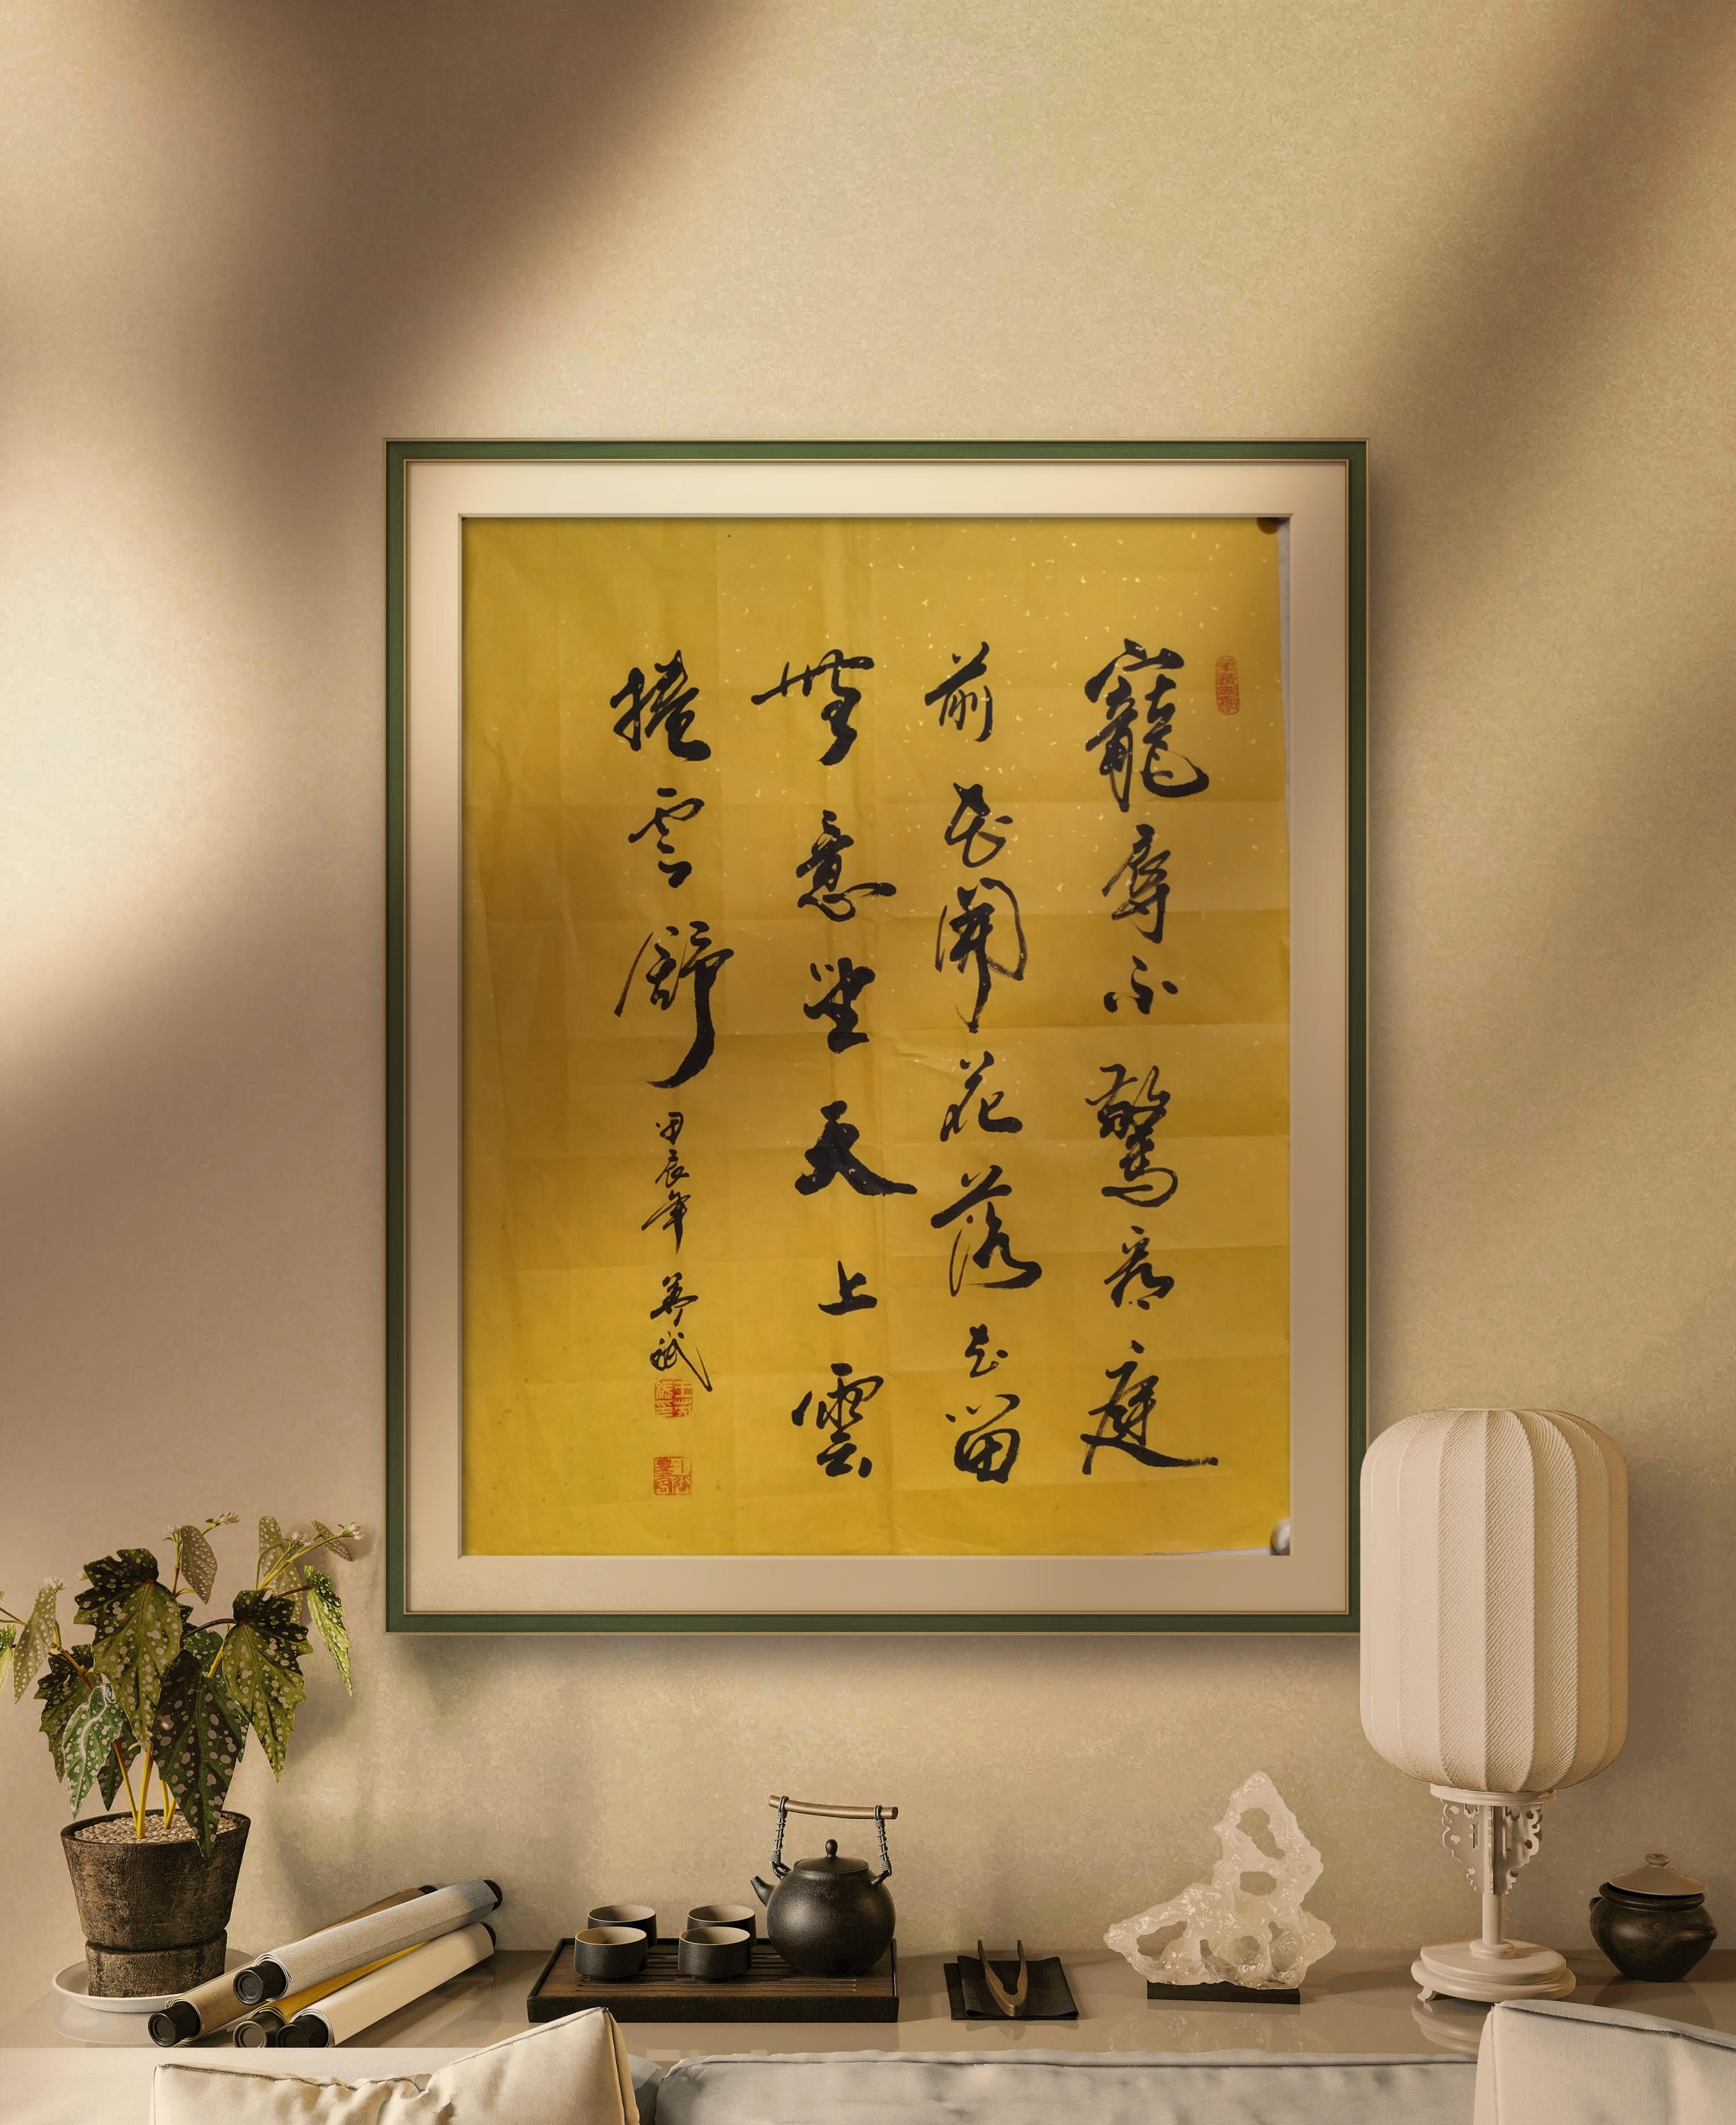 寵辱不驚看庭
前花開花落去留
無意望天上雲
捲雲舒
甲辰年